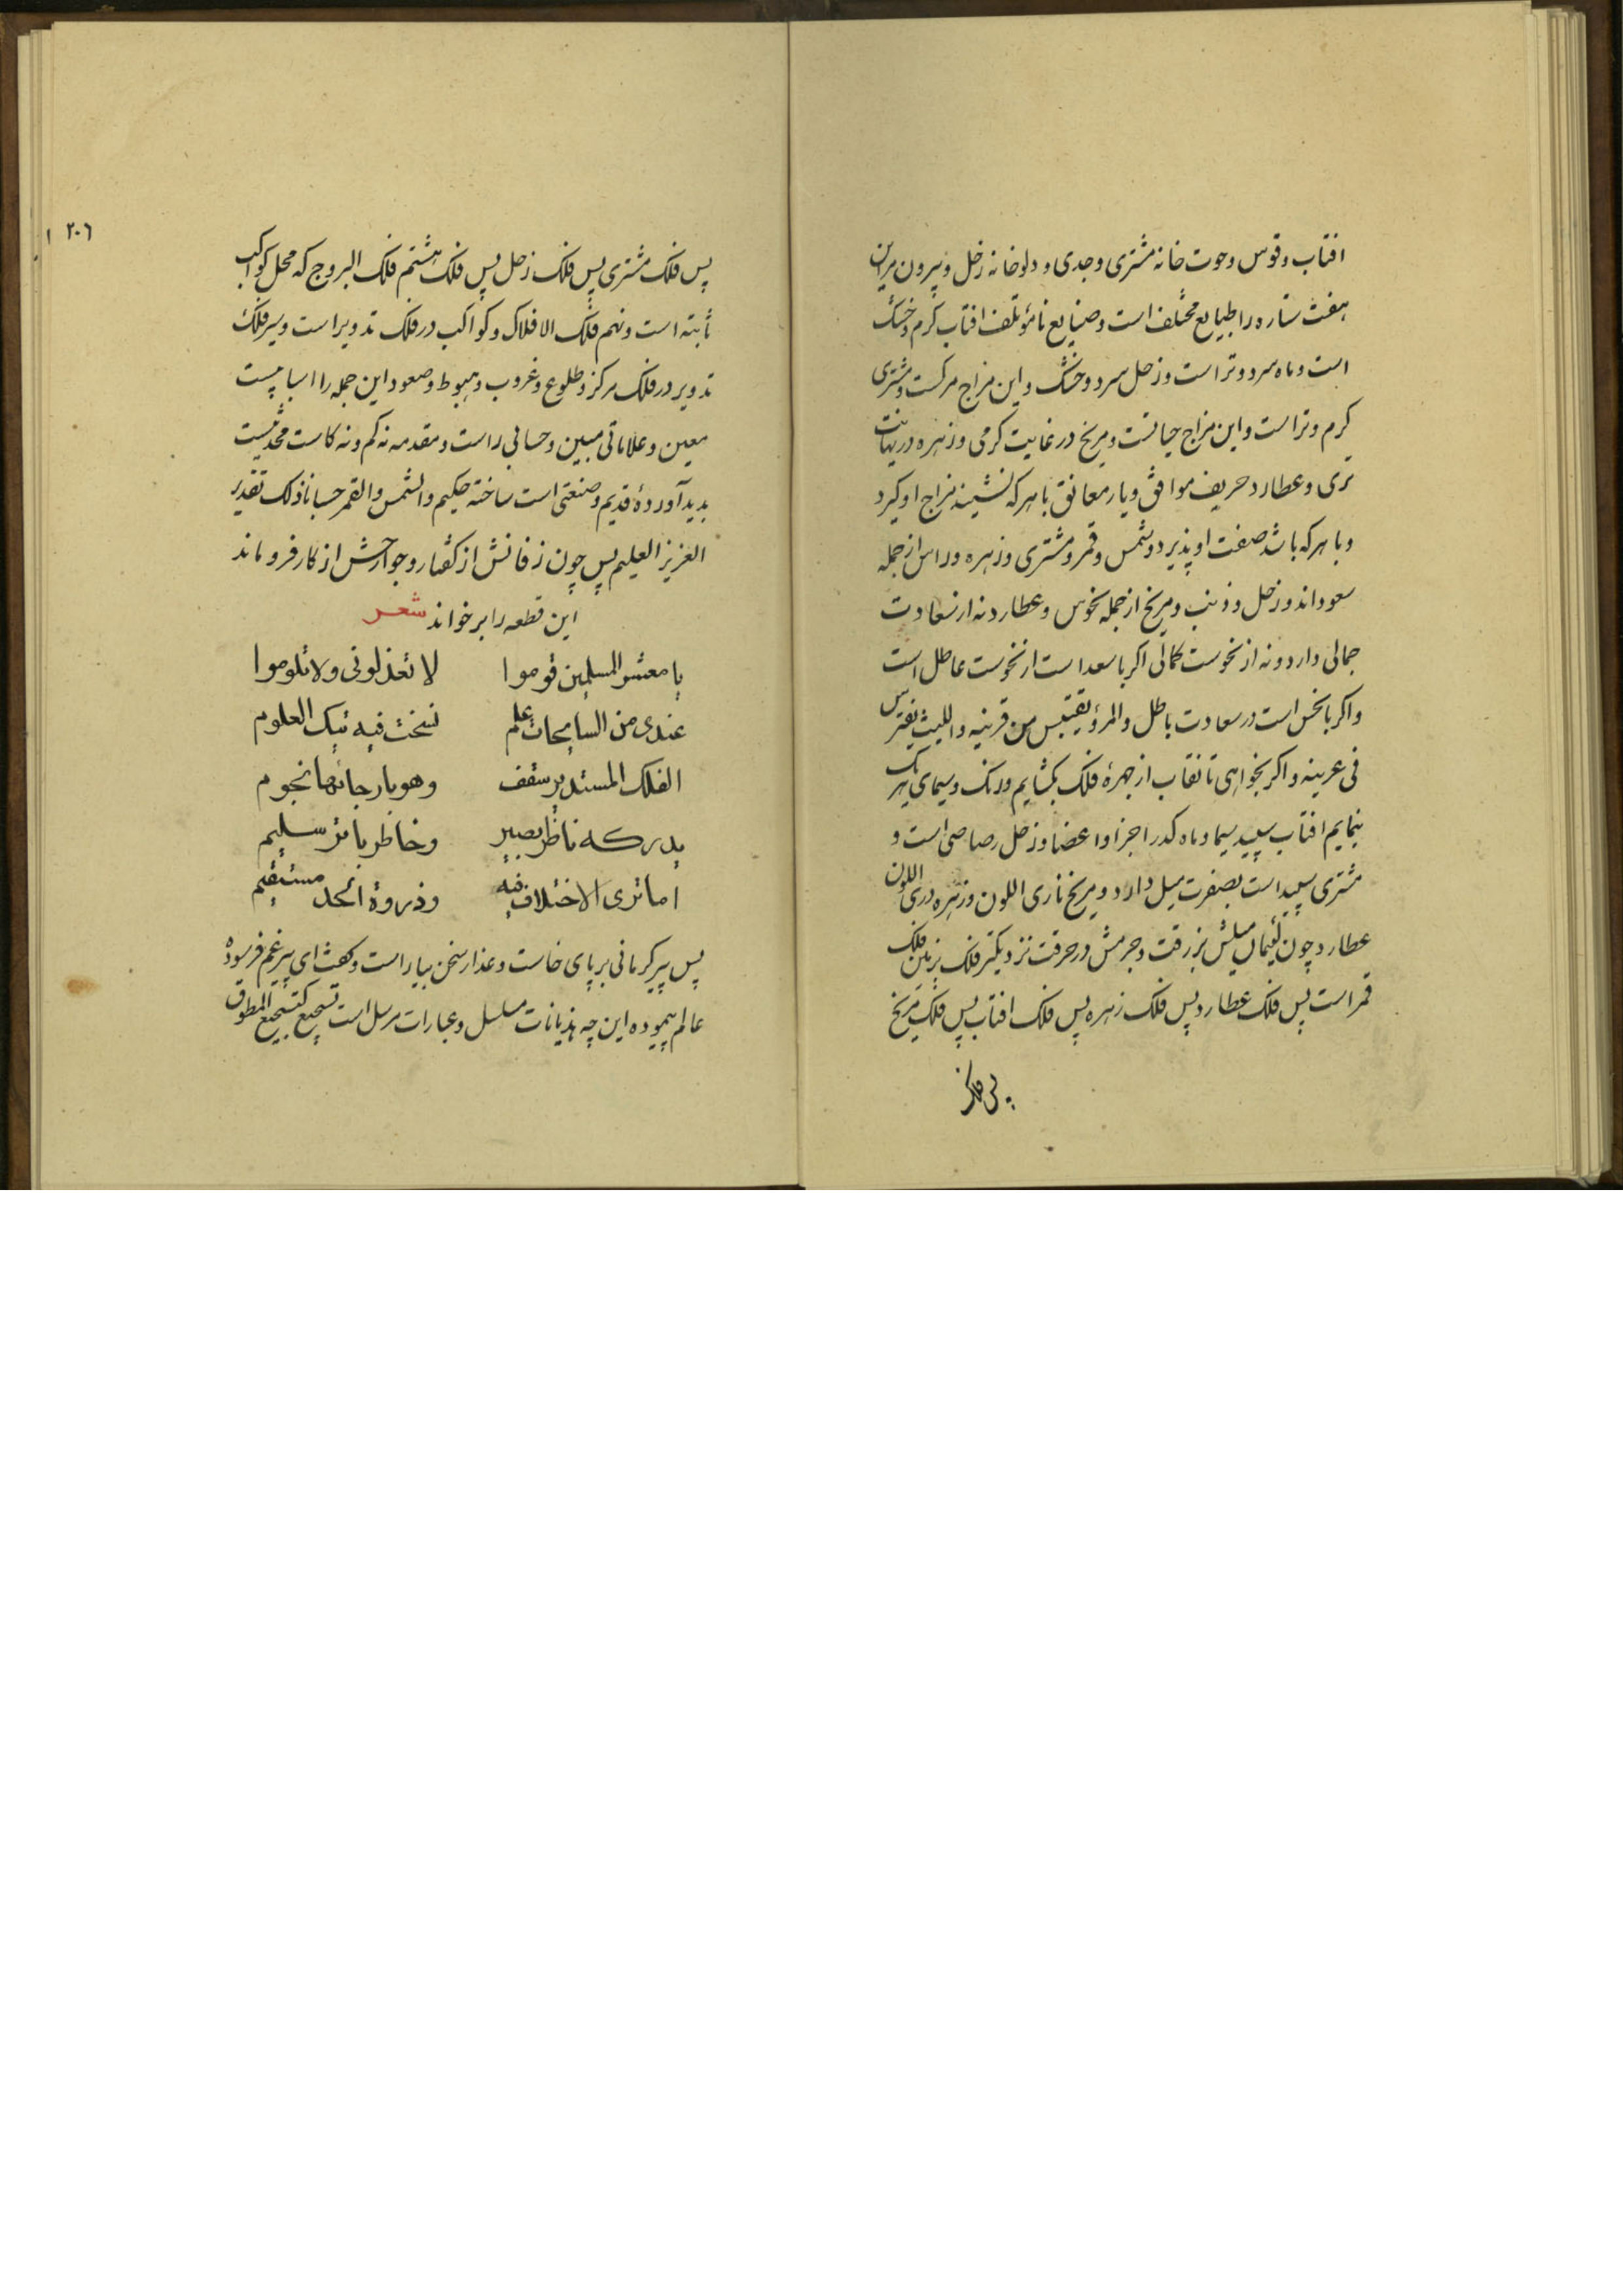 افتاب و قوس و حوت خانه مشتری و جدی و دلو خانه زحل و بیرون بر این
هفت ستاره را طبایع مختلف است و صنایع نامؤتلف افتاب کرم و خشک
است و ماه سرد و تر است و زحل سرد و خشک و این مزاج مرکست و مشتری
کرم و تر است و این مزاج حیاتست و مریخ در غایت کرمی و زهره در نهایت
تری و عطارد حریف موافق و یار معانق با هرکه نشیند مزاج او کیرد
و با هرکه باشد صفت او پذیرد و شمس و قمر و مشتری و زهره و راس از جمله
سعود اند و زحل و ذنب و مریخ از جمله نحوس و عطارد نه از سعادت
جمالی دارد و نه از نحوست کمالی اکر با سعد است از نحوست عاطل است
و اکر با نحس است در سعادت باطل والمرؤ یقتبس من قرینه واللیث یفترس
فی عرینه و اکر بخواهی تا نقاب از چهرهٔ فلک بکشایم و رنک و سیمای هریک
بنمایم افتاب سپید سیما و ماه کدر اجزا و اعضا و زحل رصاصی است و
مشتری سپید است بصفرت میل دارد و مریخ ناری اللون و زهره دری اللون
عطارد چون لئیمان میلش بزرقت و جرمش در حرقت نزدیکتر فلک بزمین فلک
قمر است پس فلک عطارد پس فلک زهره پس فلک افتاب پس فلک مریخ
پس فلک
۲۰۶
پس فلک مشتری پس فلک زحل پس فلک هشتم فلک البروج که محل کواکب
ثابته است و نهم فلک الافلاک و کواکب در فلک تدویر است و سیر فلک
تدویر در فلک مرکز و طلوع و غروب و هبوط و صعود این جمله را اسبابیست
معین و علاماتی مبین و حسابی راست و مقدمه نه کم و نه کاست محدثیست
بدید آوردهٔ قدیم و صنعتی است ساخته حکیم والشمس والقمر حسبانا ذلک تقدیر
العزیز العلیم پس چون زفانش از کفتار و جوارحش از کار فرو ماند
این قطعه را بر خواند شعر
یا معشر المسلمین قوموا لا تعذلونی ولا تلوموا
عندی من السابحات علم نسخت فیه تیک العلوم
الفلک المستدیر سقف وهو بارجائها نجوم
یدرکه ناظر بصیر وخاطر باتر سلیم
اما تری الاختلاف فیه وذروة الحد مستقیم
پس پیر کرمانی بر پای خاست و عذار سخن بیاراست و کفت ای پیر غم فرسوده
عالم پیموده این چه هذیانات مسلسل و عبارات مرسل است تسجیع کتسجیع المطوق